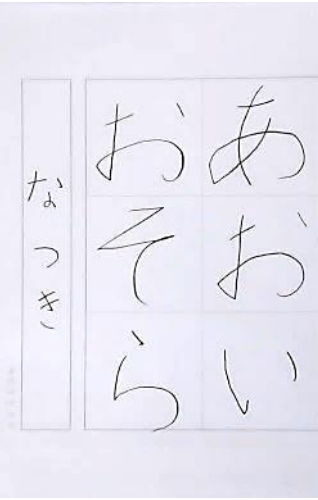 あおい
おそら
なつき